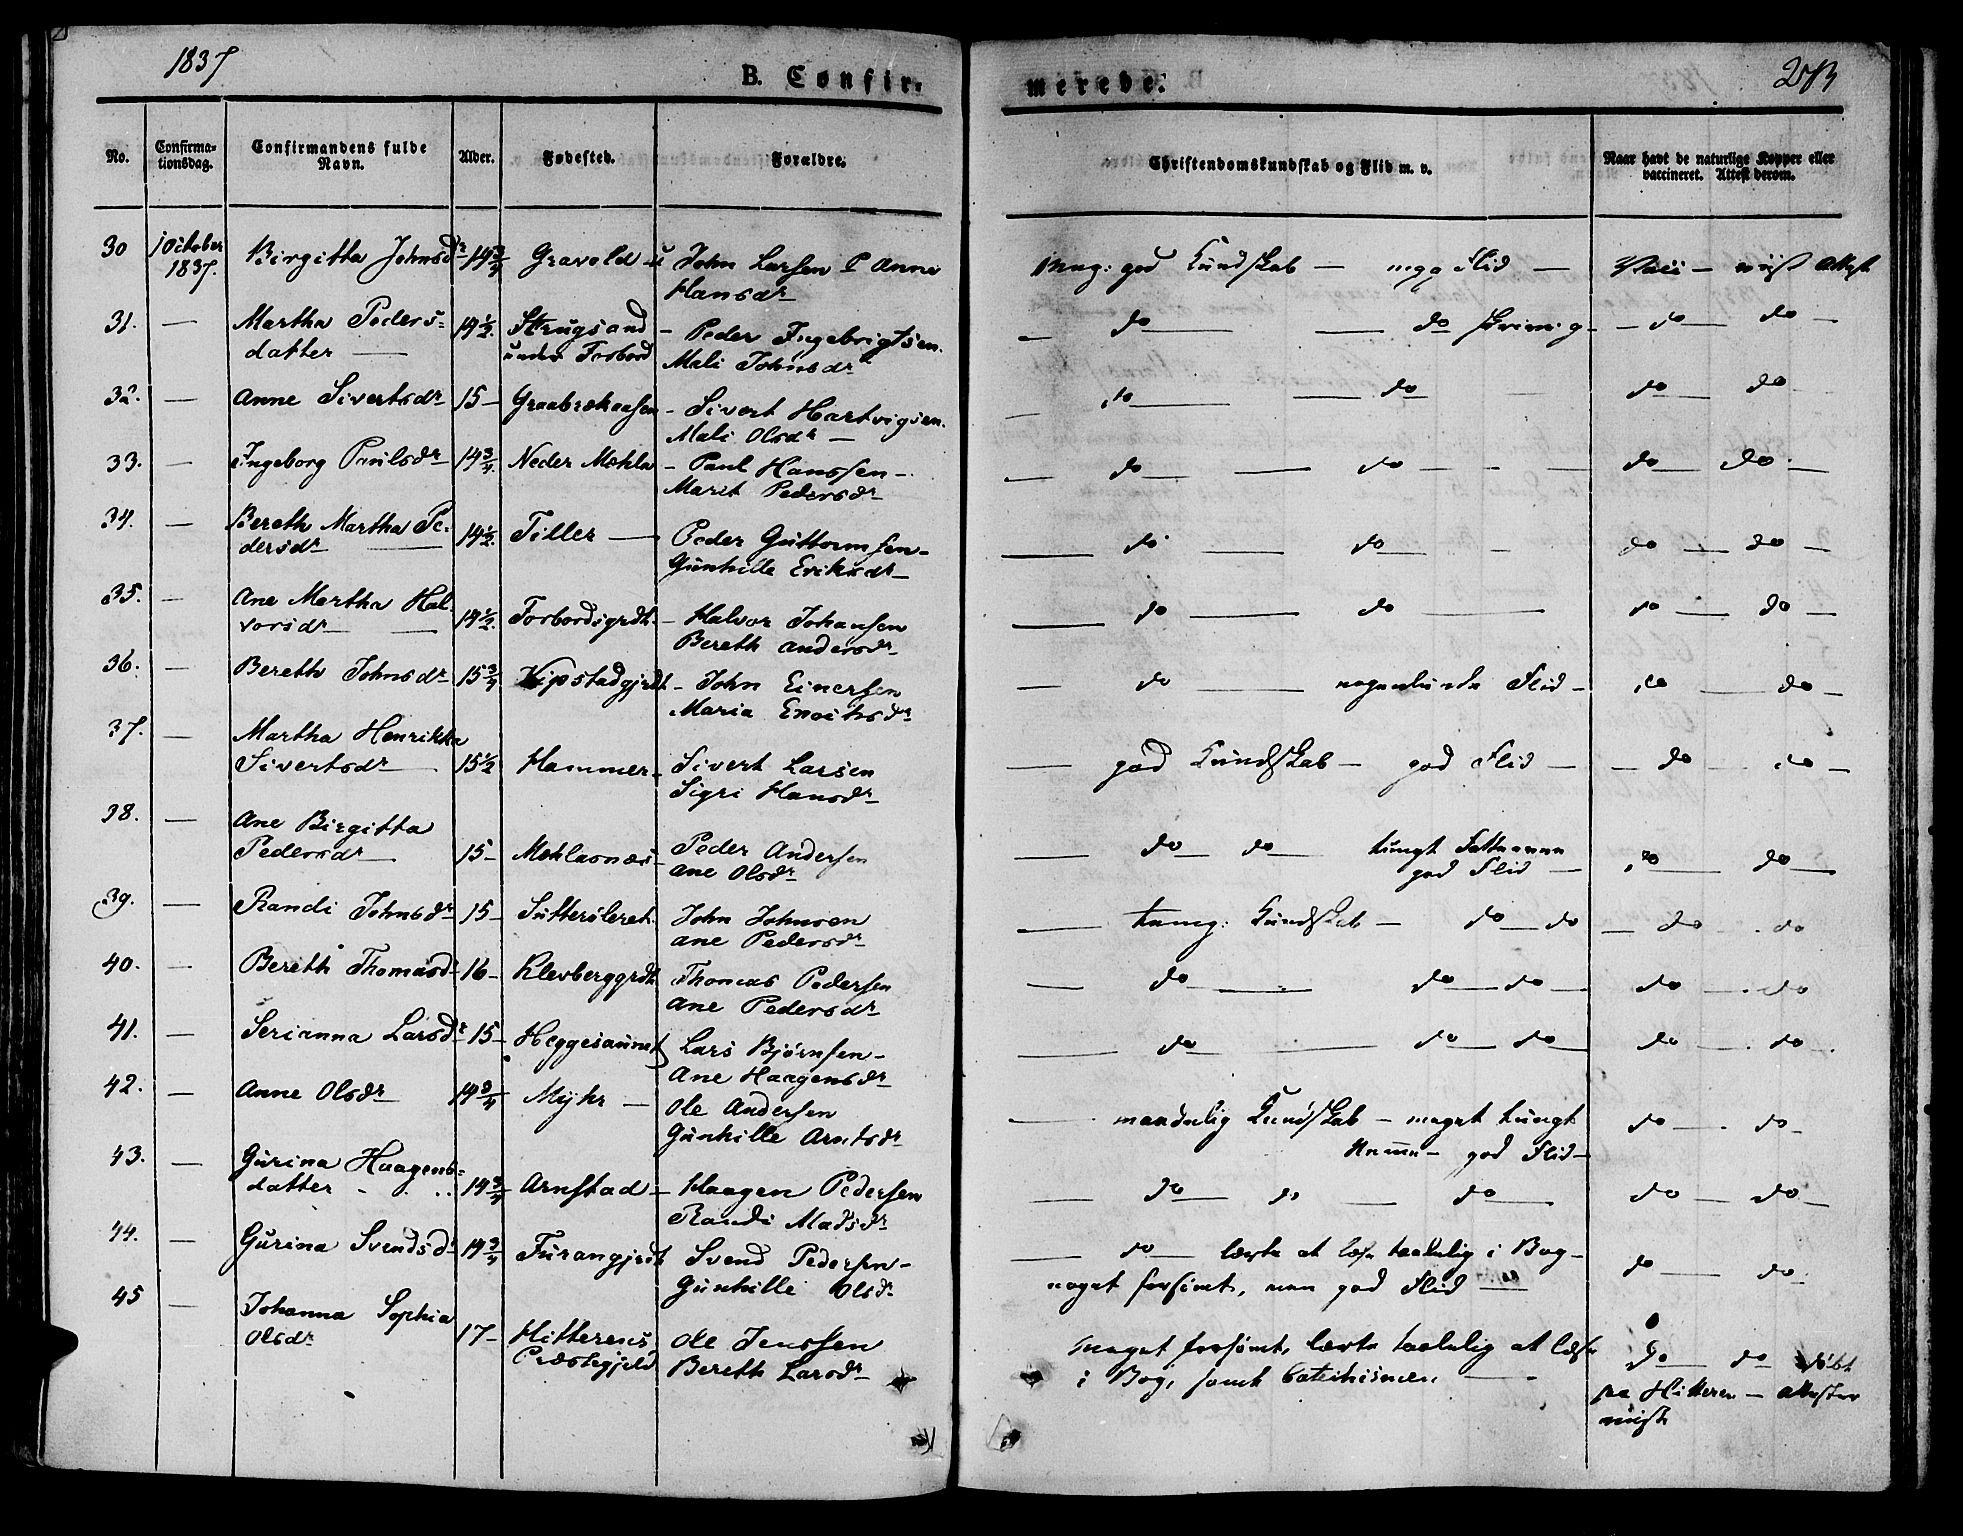 1837
B. Confir-
merede.
No.
Confirma-
tionsdag.
Confirmandens fulde
Navn.
Alder.
Fødested.
Forældre.
Christendomskundskab og Flid m. v.
Naar havt de naturlige Kopper eller
vaccineret. Attest derom.
30 1 October 1837. Birgitta Johnsdr 14¾ Gravold John Larsen Anne
Hansdr
Meg: god Kundskab — mgg Flid — Vacc — Attest
31. — Martha Peders- 14½ Strugsand — Peder Ingebrigtsen.
datter — under Forbord Mali Johnsdr
— do — do — do — do —
32. — Anne Sivertsdr 15 — Graabrækaasen — Sivert Hartvigsen.
Mali Olsdr —
— do — do do do —
33. — Ingeborg Paulsdr 14¾ Neder Mæhla — Paul Hanssen —
Marit Pedersdr
— do — do — do do —
34. — Bereth Martha Pe- 14½ Tiller — Peder Guttormsen —
dersdr — Gunhille Eriksdr —
— do — do — do — do —
35. — Ane Martha Hal- 14½ Forbordsgrdt. — Halvor Johansen
vorsdr — Bereth Andersdr
— do — do — do — do —
36. — Bereth Johnsdr 15¾ Vipstadgjrdt — John Einersen
Maria Enochsdr
— do — nogenlunde Flid — do — do —
37. — Martha Henrikka
Sivertsdr — 15½ Hammer — Sivert Larsen
Sigri Hansdr
— god Kundskab — god Flid — do — do —
38. — Ane Birgitta
Pedersdr — 15 — Mæhlasnæs — Peder Andersen
Ane Olsdr
— do — do — tungt Fattnemme
god Flid — do — do —
39. — Randi Johnsdr 15 — Sutterøleret. John Johnsen
Ane Pedersdr
— Kundskab — do — do — do — do
40. — Bereth Thomasdr 16 — Klevberggrdt. Thomas Pedersen
Ane Pedersdr
— do — do — do — do — do
41. — Serianna Larsdr 15 — Heggesaunet Lars Bjørnsen —
Ane Haagensdr
— do — do — do — do — do
42. — Anne Olsdr 14¾ Myhr — Ole Andersen
Gunhille Arntsdr
— maadelig Kundskab — meget tungt
Nemme — god Flid — do — do —
43. — Gurina Haagens-
datter 14¾ Arnstad — Haagen Pedersen
Randi Madsdr
— do — do — do — do — do —
44. — Gurina Svendsdr 14¾ Furangjrdt Svend Pedersen —
Gunhille Olsdr
— do — lærte at læse taalelig i Bog —
noget forsømt, men god Flid — do — do
45 — Johanna Sophia
Olsdr 17 — Hitterens Ole Jenssen
Præstegjeld Bereth Larsdr —
meget forsømt, lærte taalelig at læse
i Bog, samt Catechismen — do — do døbt
paa Hitteren — Attester